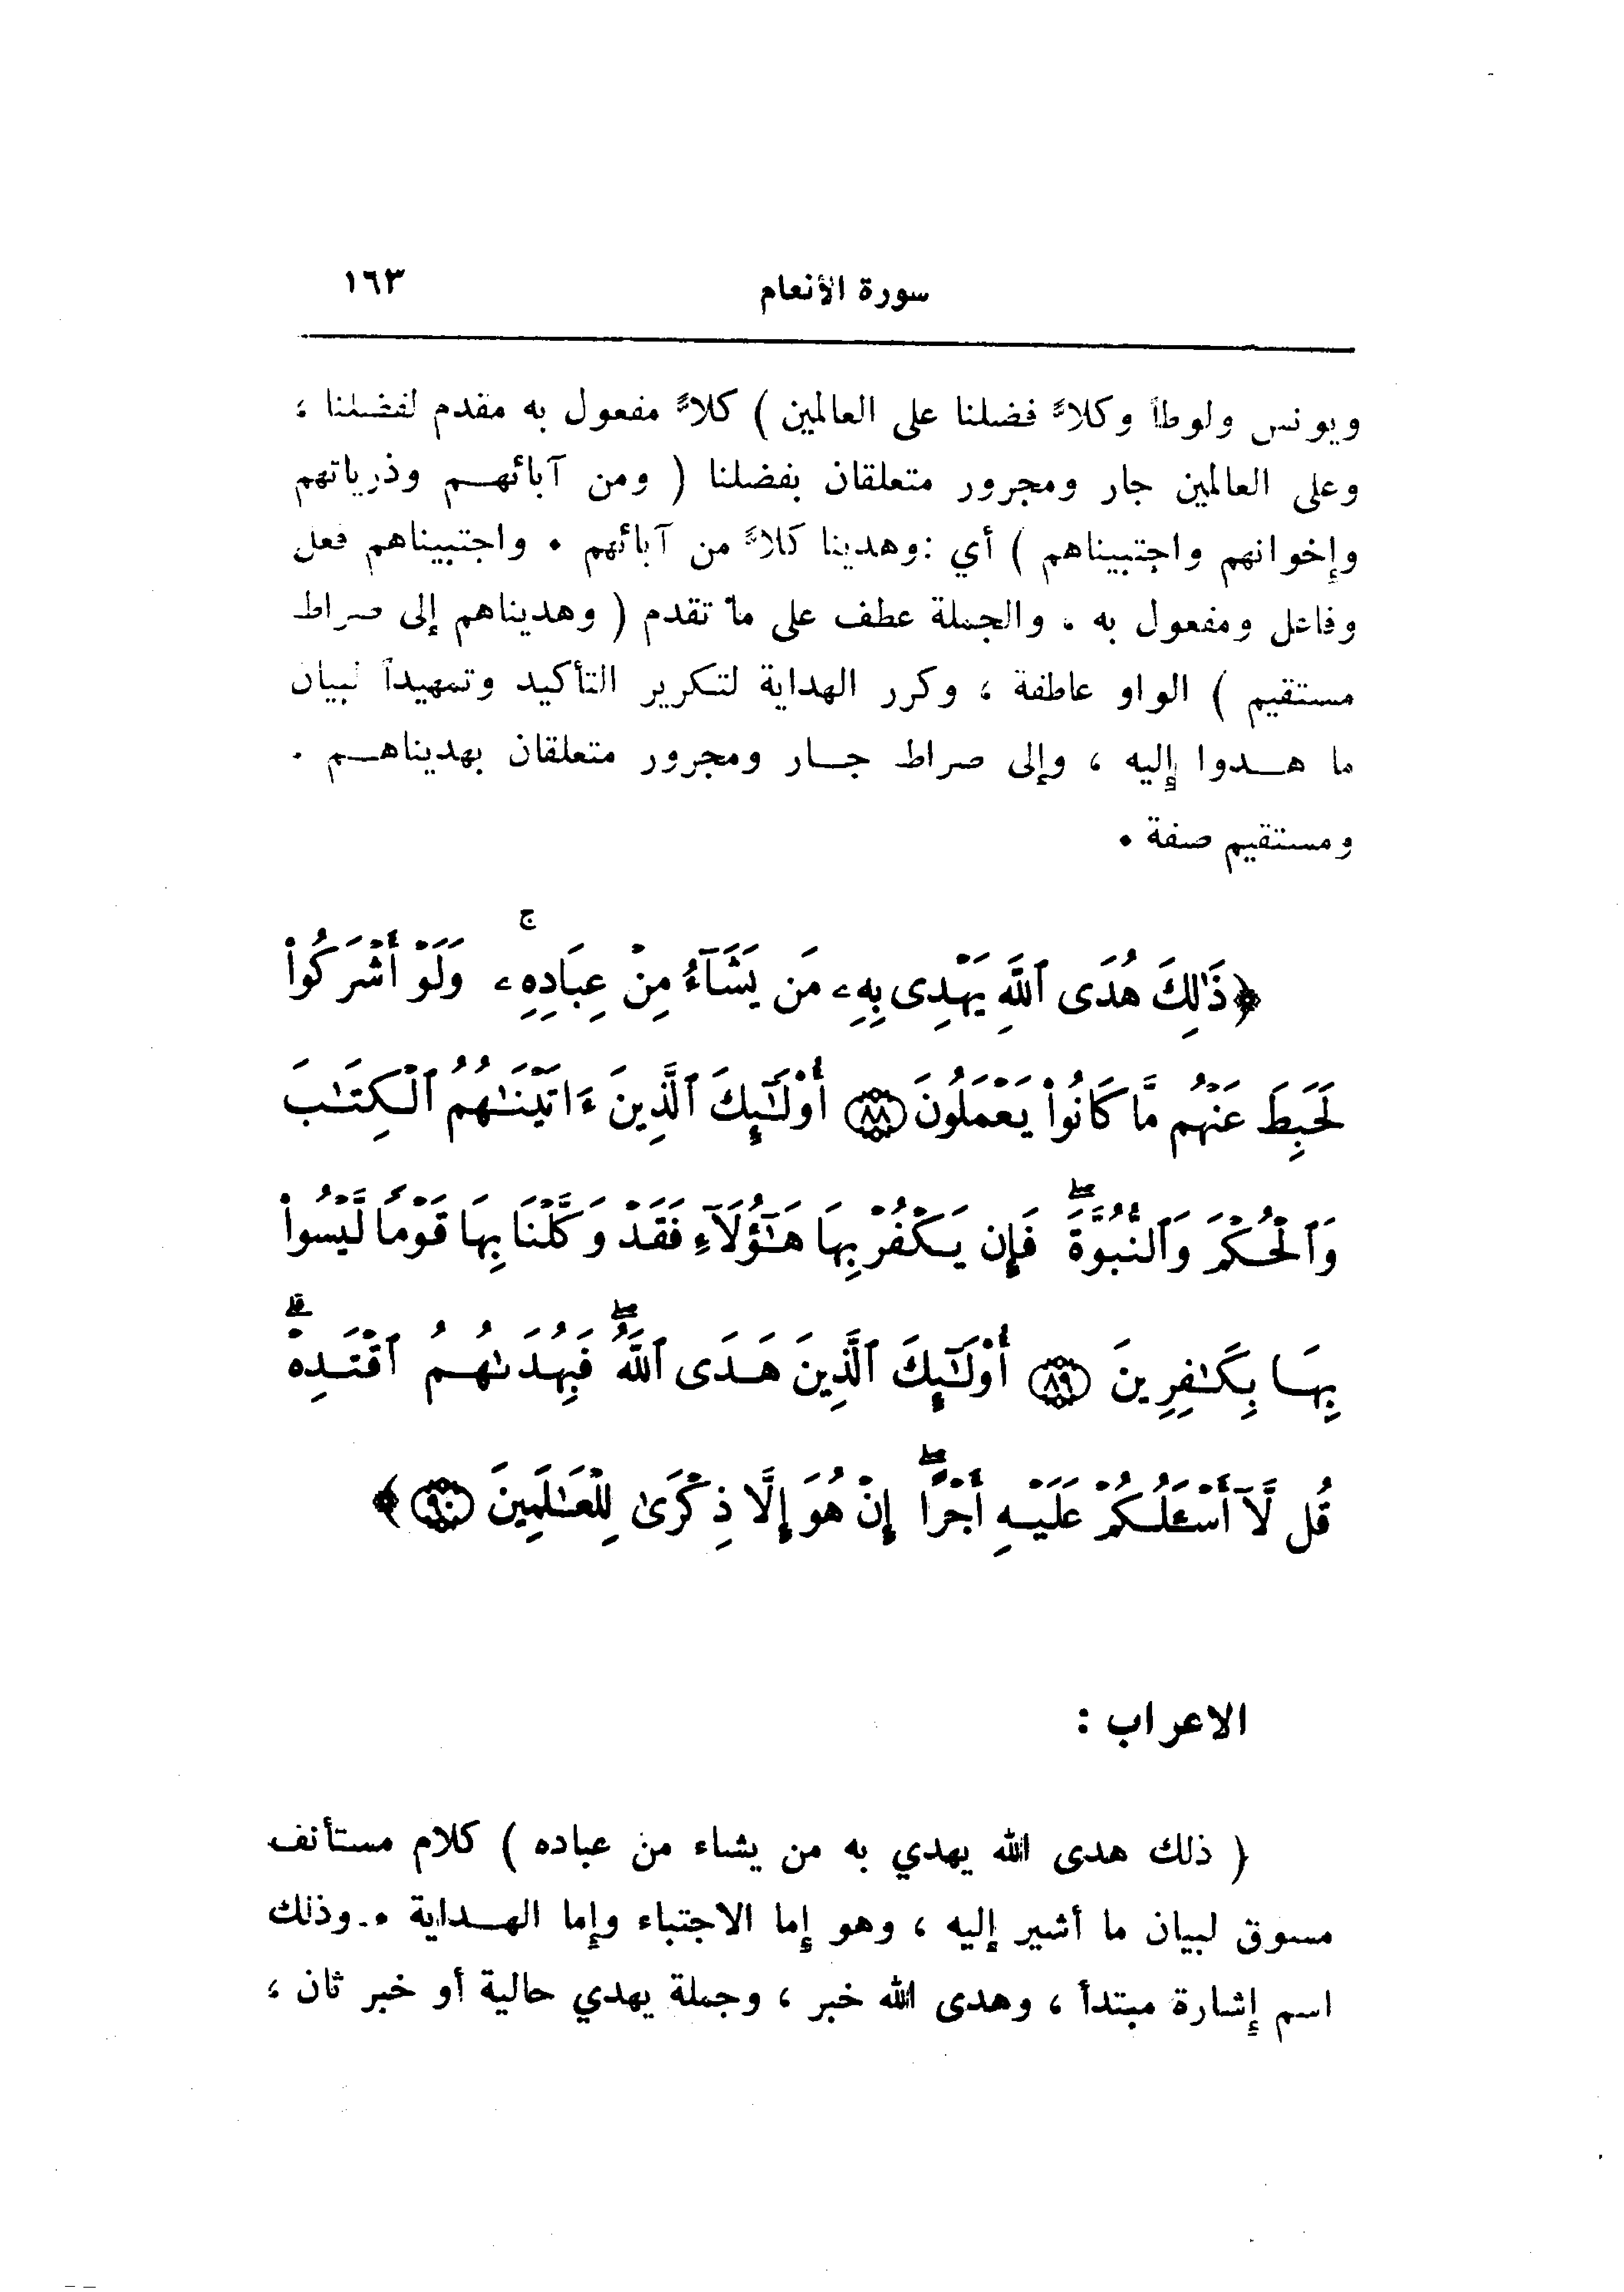 سورة الأنعام ١٦٣
ويونس ولوطاً وكلاً فضلنا على العالمين ) كلاً مفعول به مقدم لفضلنا ،
وعلى العالمين جار ومجرور متعلقان بفضلنا ( ومن آبائهم وذرياتهم
وإخوانهم واجتبيناهم ) أي : وهدينا كلاً من آبائهم . واجتبيناهم فعل
وفاعل ومفعول به . والجملة عطف على ما تقدم ( وهديناهم إلى صراط
مستقيم ) الواو عاطفة ، وكرر الهداية لتكرير التأكيد وتمهيداً لبيان
ما هدوا إليه ، وإلى صراط جار ومجرور متعلقان بهديناهم .
ومستقيم صفة .
﴿ذَٰلِكَ هُدَى ٱللَّهِ يَهْدِى بِهِۦ مَن يَشَآءُ مِنْ عِبَادِهِۦ ۚ وَلَوْ أَشْرَكُوا۟
لَحَبِطَ عَنْهُم مَّا كَانُوا۟ يَعْمَلُونَ ٨٨ أُو۟لَـٰٓئِكَ ٱلَّذِينَ ءَاتَيْنَـٰهُمُ ٱلْكِتَـٰبَ
وَٱلْحُكْمَ وَٱلنُّبُوَّةَ ۖ فَإِن يَكْفُرْ بِهَا هَـٰٓؤُلَآءِ فَقَدْ وَكَّلْنَا بِهَا قَوْمًا لَّيْسُوا۟
بِهَا بِكَـٰفِرِينَ ٨٩ أُو۟لَـٰٓئِكَ ٱلَّذِينَ هَدَى ٱللَّهُ ۖ فَبِهُدَىٰهُمُ ٱقْتَدِهْ ۗ
قُل لَّآ أَسْـَٔلُكُمْ عَلَيْهِ أَجْرًا ۖ إِنْ هُوَ إِلَّا ذِكْرَىٰ لِلْعَـٰلَمِينَ ٩٠ ﴾
الاعراب :
( ذلك هدى الله يهدي به من يشاء من عباده ) كلام مستأنف
مسوق لبيان ما أشير إليه ، وهو إما الاجتباء وإما الهداية . وذلك
اسم إشارة مبتدأ ، وهدى الله خبر ، وجملة يهدي حالية أو خبر ثان ،